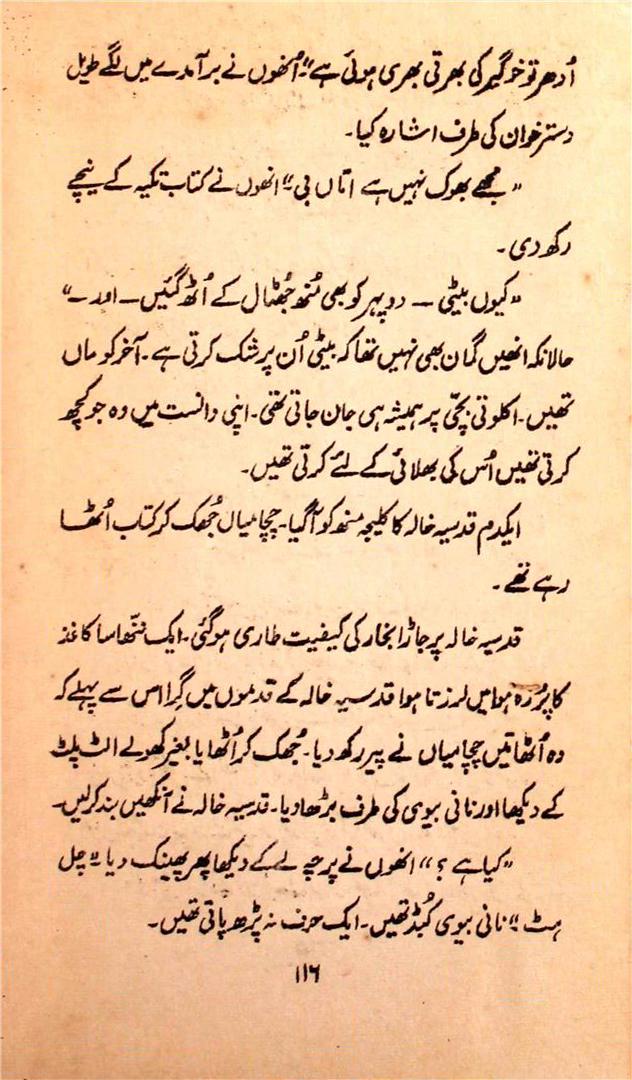 اُدھر تو خوگیر کی بھرتی بھری ہوئی ہے" اُنھوں نے برآمدے میں لگے طویل
دسترخوان کی طرف اشارہ کیا۔
"مجھے بھوک نہیں ہے اماں بی" انھوں نے کتاب تکیہ کے نیچے
رکھ دی۔
"کیوں بیٹی — دوپہر کو بھی مُنھ جُھٹال کے اُٹھ گئیں — اور —"
حالانکہ انھیں گمان بھی نہیں تھا کہ بیٹی اُن پر شک کرتی ہے۔ آخر کو ماں
تھیں۔ اکلوتی بچّی پر ہمیشہ ہی جان جاتی تھی۔ اپنی دانست میں وہ جو کچھ
کرتی تھیں اُس کی بھلائی کے لئے کرتی تھیں۔
ایکدم قدسیہ خالہ کا کلیجہ منھ کو آگیا۔ چچا میاں جُھک کر کتاب اُٹھا
رہے تھے۔
قدسیہ خالہ پر جاڑا بخار کی کیفیت طاری ہوگئی۔ ایک ننّھا سا کاغذ
کا پُرزہ ہوا میں لرزتا ہوا قدسیہ خالہ کے قدموں میں گرا اس سے پہلے کہ
وہ اُٹھاتیں چچا میاں نے پیر رکھ دیا۔ جُھک کر اُٹھایا بغیر کھولے الٹ پلٹ
کے دیکھا اور نانی بیوی کی طرف بڑھا دیا۔ قدسیہ خالہ نے آنکھیں بند کرلیں۔
"کیا ہے؟" انھوں نے پرچہ لے کے دیکھا پھر پھینک دیا "چل
ہٹ" نانی بیوی کُبڈ تھیں۔ ایک حرف نہ پڑھ پاتی تھیں۔
۱۱۶